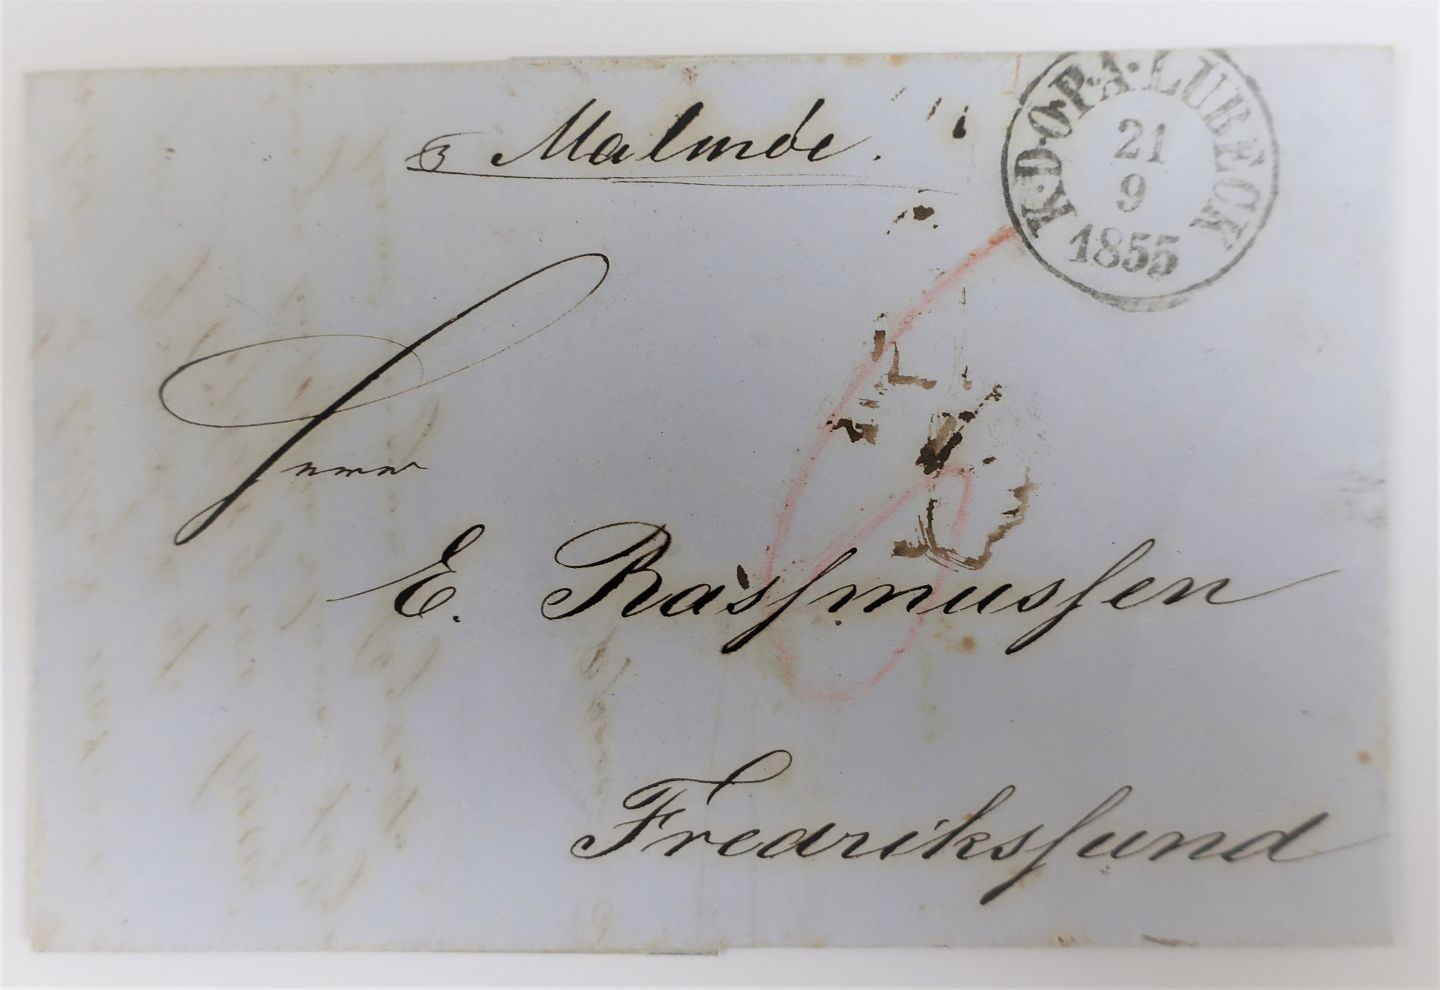 Malmöe.
K·D·O·P·A·LUBECK
21
9
1855
Herrn
E. Rassmussen
Frederikssund